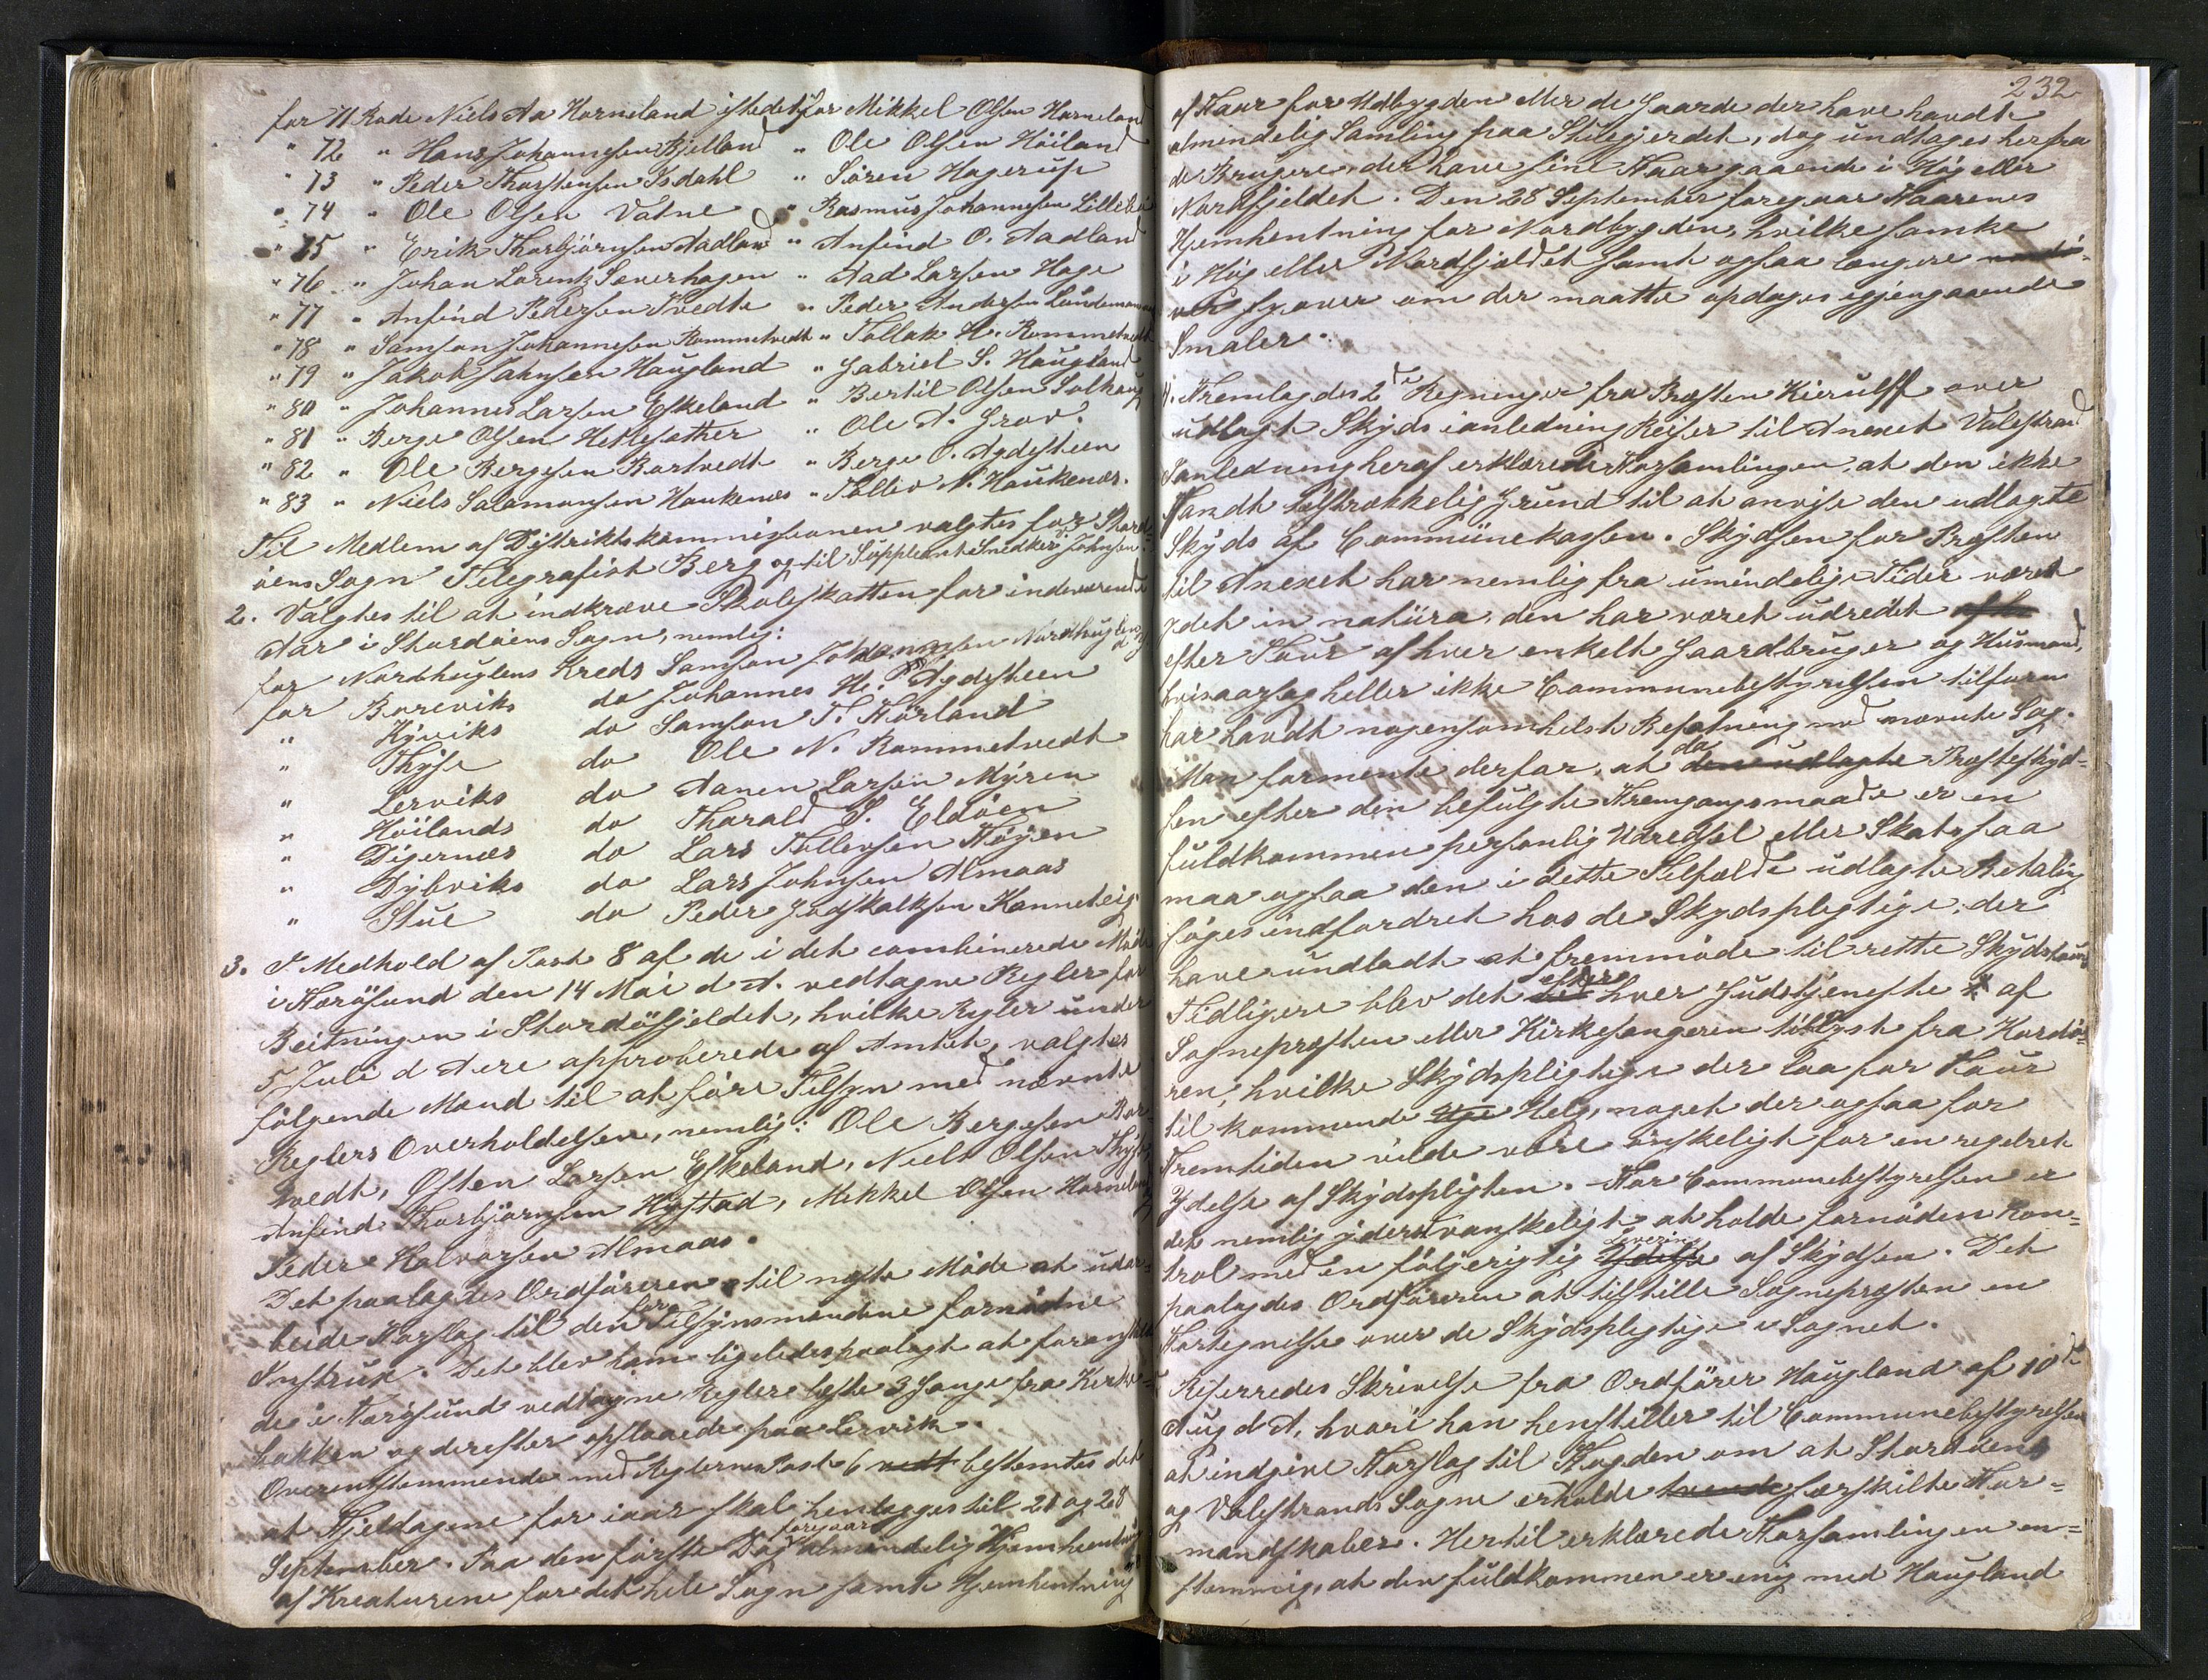 for 71 Rode Niels Aa Horneland istedetfor Mikkel Olsen Horneland
" 72 " Hans Johannesen Bjelland " Ole Olsen Höiland
" 73 " Peder Thorstensen Isdahl " Sören Hagerup
" 74 " Ole Olsen Vatne " Rasmus Johannesen Lillebö
" 75 " Erik Thorbjörnsen Aadland " Anfind O. Aadland
" 76 " Johan Lorentz Sæverhagen " Aad Larsen Hage
" 77 " Anfind Pedersen Tvedte " Peder Andersen
" 78 " Samson Johannesen Rommetvedt " Tollak H. Rommetvedt
" 79 " Jakob Jahnsen Haugland " Gabriel S. Haugland
" 80 " Johannes Larsen Eskeland " Bertil Olsen Solhaug
" 81 " Berge Olsen Hetlesæther " Ole A. Grov.
" 82 " Ole Bergesen Bortvedt " Berge O. Agdesteen
" 83 " Niels Salamonsen Haukenæs " Tollev N. Haukenæs.
Til Medlem af Distriktskommissionen valgtes for Stord-
öens Sogn Telegrafist Berg og til Suppleant Snedker J. Johnsen.
2. Valgtes til at indkræve Skoleskatten for indeværende
Aar i Stordöens Sogn, nemlig:
for Nordhuglens Kreds Samson Johannesen Nordhuglen
for Boreviks do Johannes H. Agdesteen
" Hyviks do Samson T. Hörland
" Thyse do Ole N. Rommetvedt
" Lerviks do Aanen Larsen Myren
" Höilands do Thorald S. Eldöen
" Digernæs do Lars Tollevsen Högen
" Dybviks do Lars Johnsen Almaas
" Stue do Peder Godskalksen Kanneteig
3. I Medhold af Post 8 af de i det combinerede Möde
i Nærösund den 14 Mai d A. vedtagne Regler for
Beitningen i Stordöfjeldet, hvilke Regler under
5 Juli d A ere approberede af Amtet, valgtes
fölgende Mænd til at före Tilsyn med nævnte
Reglers Overholdelse, nemlig: Ole Bergesen Bor-
tvedt, Östen Larsen Eskeland, Niels Olsen Thyse,
Anfind Thorbjörnsen Hystad, Mikkel Olsen Horneland,
Peder Halvorsen Almaas.
Det paalagdes Ordföreren til næste Möde at udar-
beide Forslag til den for Tilsynsmændene fornödne
Instrux. Det blev ham ligeledes paalagt at foranstalte
de i Nærösund vedtagne Regler læste 3 Gange fra Kirke-
bakken og derefter opslaaede paa Lervik.
Overensstemmende med Reglernes Post 6 vedt bestemtes det
at Fjeldagene for iaar skal henlægges til 21 og 28
September. Paa den förste Dag foregaar almindelig Hjemhentning
af Kreaturene for det hele Sogn samt Hjemhentning
232
af Faar for Udbygden eller de Gaarde der have havdt
almindelig Samling paa Stuegjerdet, dog undtages herfra
de Brugere, der have sine Faar gaaende i Høg eller
Nordfjeldet. Den 28 September foregaar Faarenes
Hjemhentning for Nordbygden, hvilke samke
i Høg eller Nordfjeldet samt ogsaa længere
over om der maatte opdages igjengaaende
Smaler.
4. Fremlagdes 2de Regninger fra Præsten Kierulff over
udlagt Skyds i anledning Reiser til Anexet Valestrand
I anledning heraf erklærede Forsamlingen, at den ikke
fandt tilstrækkelig Grund til at anvise den udlagte
Skyds af Communekassen. Skydsen for Præsten
til Anexet har nemlig fra umindelige Tider været
ydet in natura, den har været udredet
efter Tour af hver enkelt Gaardbruger og Husmand,
hvisaarsag heller ikke Communebestyrelsen tilforn
har havdt nogensomhelst Befatning med nævnte Sag.
Man formente derfor, at da den udlagte Præsteskyd-
sen efter den befulgte Fremgangsmaade er en
fuldkommen personlig Udredsel eller Skat, saa
maa ogsaa den i dette Tilfælde udlagte Betaling
söges indfordret hos de Skydspligtige, der
have undladt at fremmöde til rette Skydstour
Tidligere blev det efter hver Gudstjeneste af
Sognepræsten eller Kirkesangeren tillyst fra Kordö-
ren, hvilke Skydspligtige der laa for Tour
til kommende Helg, noget der ogsaa for
Fremtiden vilde være önskeligt for en regelret
Ydelse af Skydspligten. For Communebestyrelsen er
det nemlig yderst vanskeligt at holde fornöden Kon-
trol med en fölgerigtig Ydelse Levering af Skydsen. Det
paalagdes Ordföreren at tilstille Sognepræsten en
Fortegnelse over de Skydspligtige i Sognet.
Refereredes Skrivelse fra Ordförer Haugland af 10de
Aug d A. hvori han henstiller til Communebestyrelsen
at indgive Forslag til Fogden om at Stordöens
og Valestrands Sogne erholde særskilte For-
mandskaber. Hertil erklærede Forsamlingen en-
stemmig, at den fuldkommen er enig med Haugland